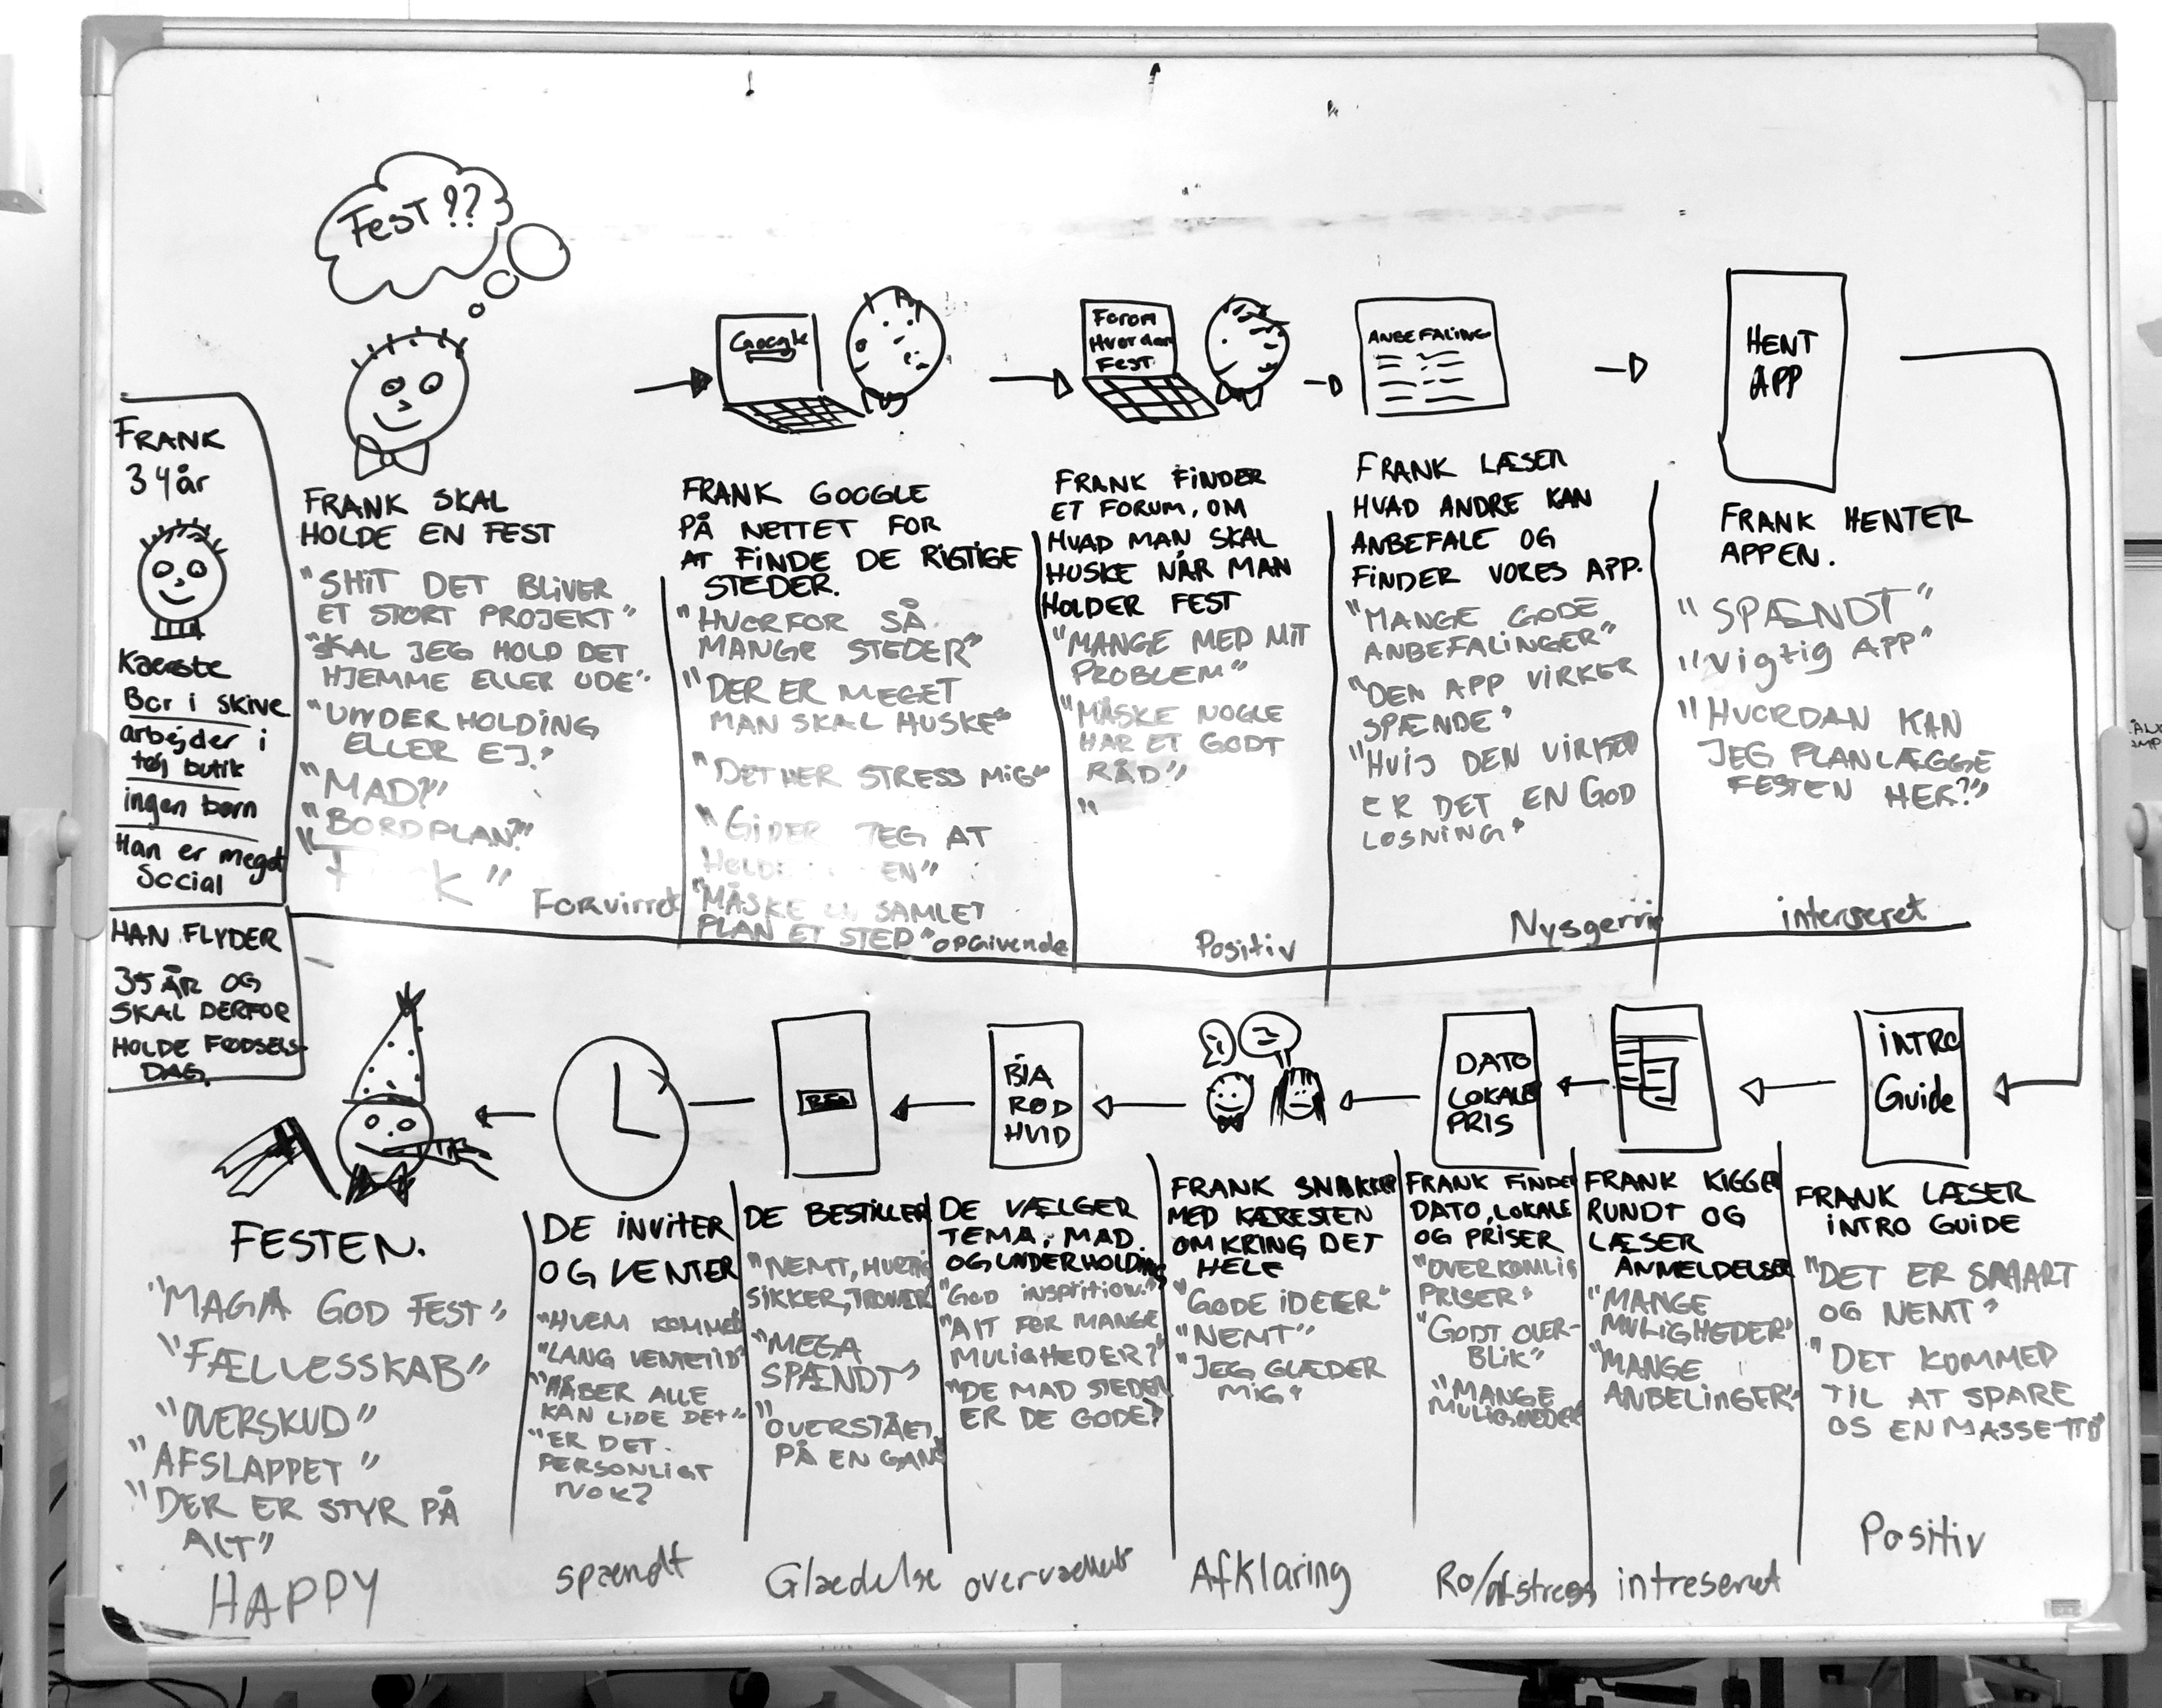 FRANK
34 år
Kæreste
Bor i skive
arbejder i
tøj butik
ingen børn
Han er meget
Social
HAN FLYDER
35 ÅR OG
SKAL DERFOR
HOLDE FØDSELS-
DAG.
FEST??
FRANK SKAL
HOLDE EN FEST
"SHIT DET BLIVER
ET STORT PROJEKT"
"SKAL JEG HOLD DET
HJEMME ELLER UDE"
"UNDERHOLDING
ELLER EJ?"
"MAD?"
"BORDPLAN?"
Forvirret
Google
FRANK GOOGLE
PÅ NETTET FOR
AT FINDE DE RIGTIGE
STEDER.
"HVORFOR SÅ
MANGE STEDER"
"DER ER MEGET
MAN SKAL HUSKE"
"DET HER STRESS MIG"
"GIDER JEG AT
HOLDE EN"
"MÅSKE EN SAMLET
PLAN ET STED"
opgivende
Forom
Hvordan
Fest.
FRANK FINDER
ET FORUM, OM
HVAD MAN SKAL
HUSKE NÅR MAN
HOLDER FEST
"MANGE MED MIT
PROBLEM"
"MÅSKE NOGLE
HAR ET GODT
RÅD"
"
Positiv
ANBEFALING
FRANK LÆSER
HVAD ANDRE KAN
ANBEFALE OG
FINDER VORES APP.
"MANGE GODE
ANBEFALINGER"
"DEN APP VIRKER
SPÆNDE"
"HVIS DEN VIRKER
ER DET EN GOD
LØSNING"
Nysgerrig
HENT
APP
FRANK HENTER
APPEN.
"SPÆNDT"
"Vigtig APP"
"HVORDAN KAN
JEG PLANLÆGGE
FESTEN HER?"
interseret
INTRO
Guide
FRANK LÆSER
INTRO GUIDE
"DET ER SMART
OG NEMT"
"DET KOMMED
TIL AT SPARE
OS EN MASSE TID"
Positiv
FRANK KIGGER
RUNDT OG
LÆSER
ANMELDELSER
"MANGE
MULIGHEDER"
"MANGE
ANBELINGER"
intreseret
DATO
LOKALE
PRIS
FRANK FINDER
DATO, LOKALE
OG PRISER
"OVERKOMLIG
PRISER"
"GODT OVER-
BLIK"
"MANGE
MULIGHEDER"
Ro/afstress
FRANK SNAKKER
MED KÆRESTEN
OMKRING DET
HELE
"GODE IDEER"
"NEMT"
"JEG GLÆDER
MIG"
Afklaring
BLÅ
RØD
HVID
DE VÆLGER
TEMA, MAD.
OG UNDERHOLDING
"GOD INSPRITION."
"ALT FOR MANGE
MULIGHEDER?"
"DE MAD STEDER
ER DE GODE?"
overvældet
DE BESTILLER
"NEMT, HURTIG
SIKKER,
"MEGA
SPÆNDT"
"OVERSTÅET
PÅ EN GANG"
Glædelse
DE INVITER
OG VENTER
"HVEM KOMMER
"LANG VENTETID"
"HÅBER ALLE
KAN LIDE DET"
"ER DET
PERSONLIGT
NOK?
spændt
FESTEN.
"MAGA GOD FEST"
"FÆLLESSKAB"
"OVERSKUD"
"AFSLAPPET"
"DER ER STYR PÅ
ALT"
HAPPY